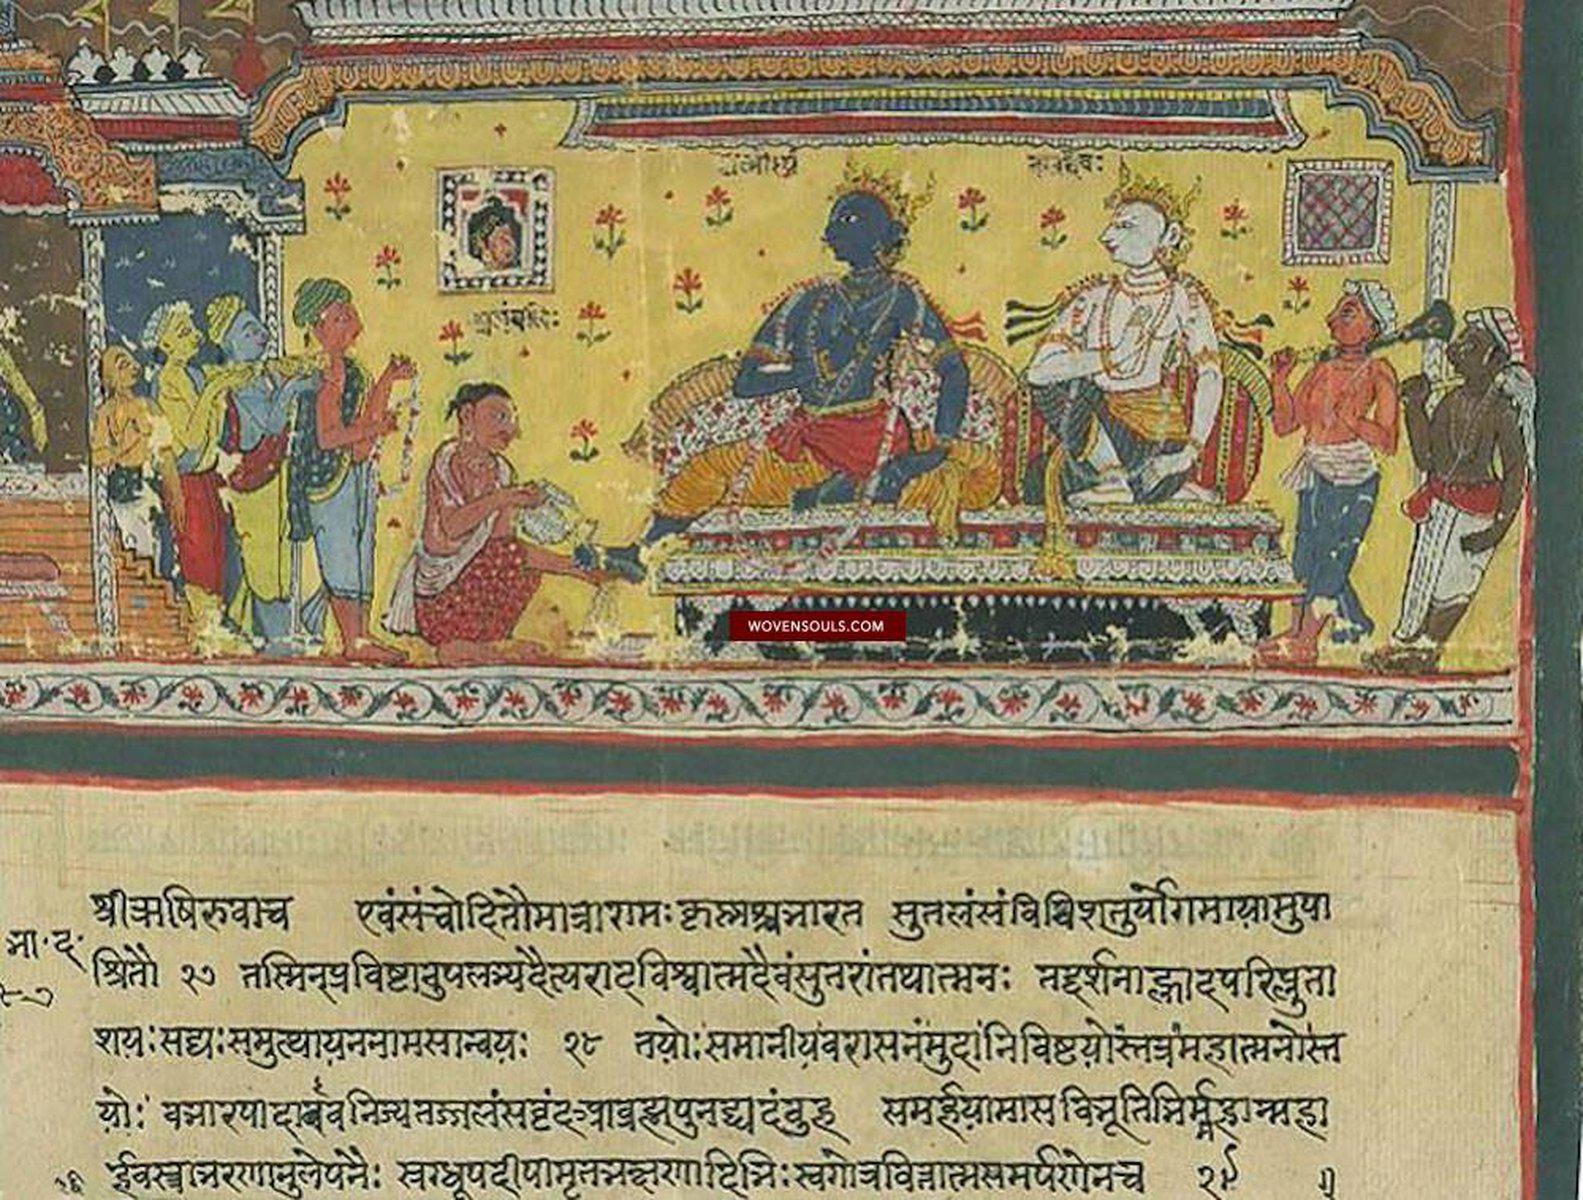 बलदेवः
WOVENSOULS.COM
श्रीऋषिरुवाच एवंसंचोदितौमात्रारामःकृष्णश्चभारत सुतलंसंविविशतुर्योगमायामुपा
भा·द·
श्रितौ २७ तस्मिन्प्रविष्टावुपलभ्यदैत्यराट्विश्वात्मदैवंसुतरांतथात्मनः तद्दर्शनाह्लादपरिप्लुता
शयःसद्यःसमुत्थायननामसान्वयः २८ तयोःसमानीयवरासनंमुदानिविष्टयोस्तत्रमहात्मनोस्त
योः बभारपादाववनिज्यतज्जलंसवृंदआब्रह्मपुनद्यदंबुह समर्हयामासविभूतिभिर्महान्महा
र्हवस्त्राभरणानुलेपनैः स्रग्धूपदीपामृतभक्षणादिभिःस्वगोत्रवित्तात्मसमर्पणेनच २९ ॥